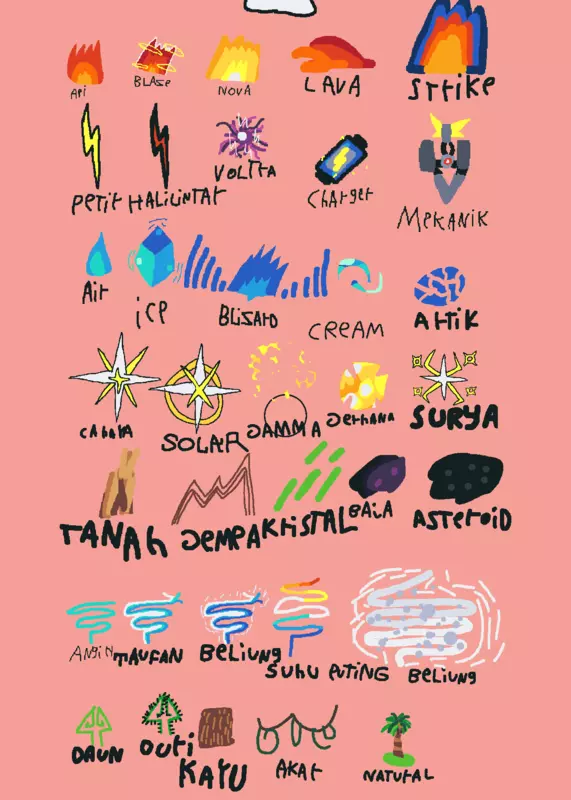 Api BLAZe NOVA LAVA Sttike
Petit HALiLiNtAt VOLtTA ChAtget MeKANiK
Ait iCe BLiSAtD CREAM AttiK
CAhAYA SOLAR GAMMA Gethana SURYA
TANAh GEMPA KtiSTAL GAiA ASteroiD
ANGiN TAUFAN BeLiUNG SUhU PUTiNG BeLiUNG
DAUN DUti KAYU AKAt NATUtAL